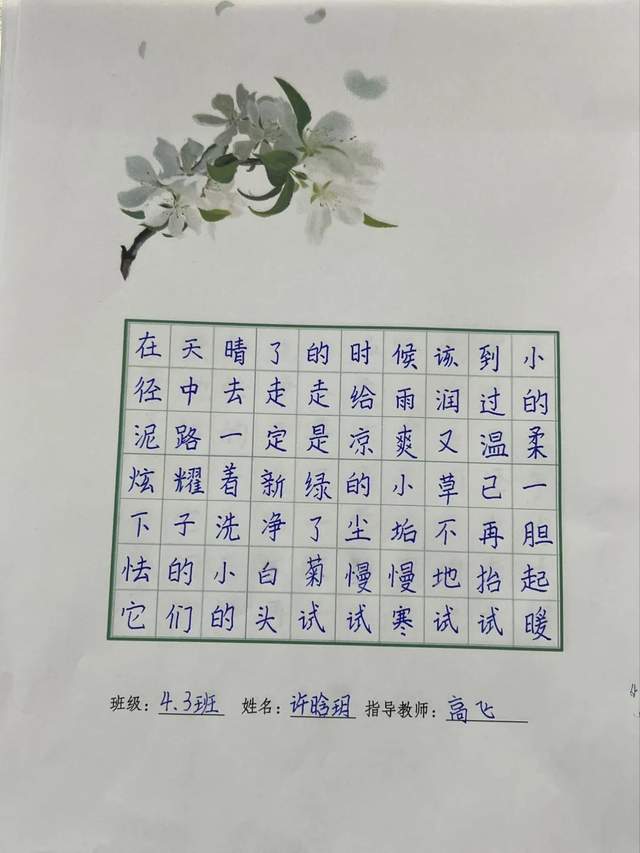 在天晴了的时候该到小
径中去走走给雨润过的
泥路一定是凉爽又温柔
炫耀着新绿的小草已一
下子洗净了尘垢不再胆
怯的小白菊慢慢地抬起
它们的头试试寒试试暖
班级：4.3班 姓名：许晗玥 指导教师：高飞